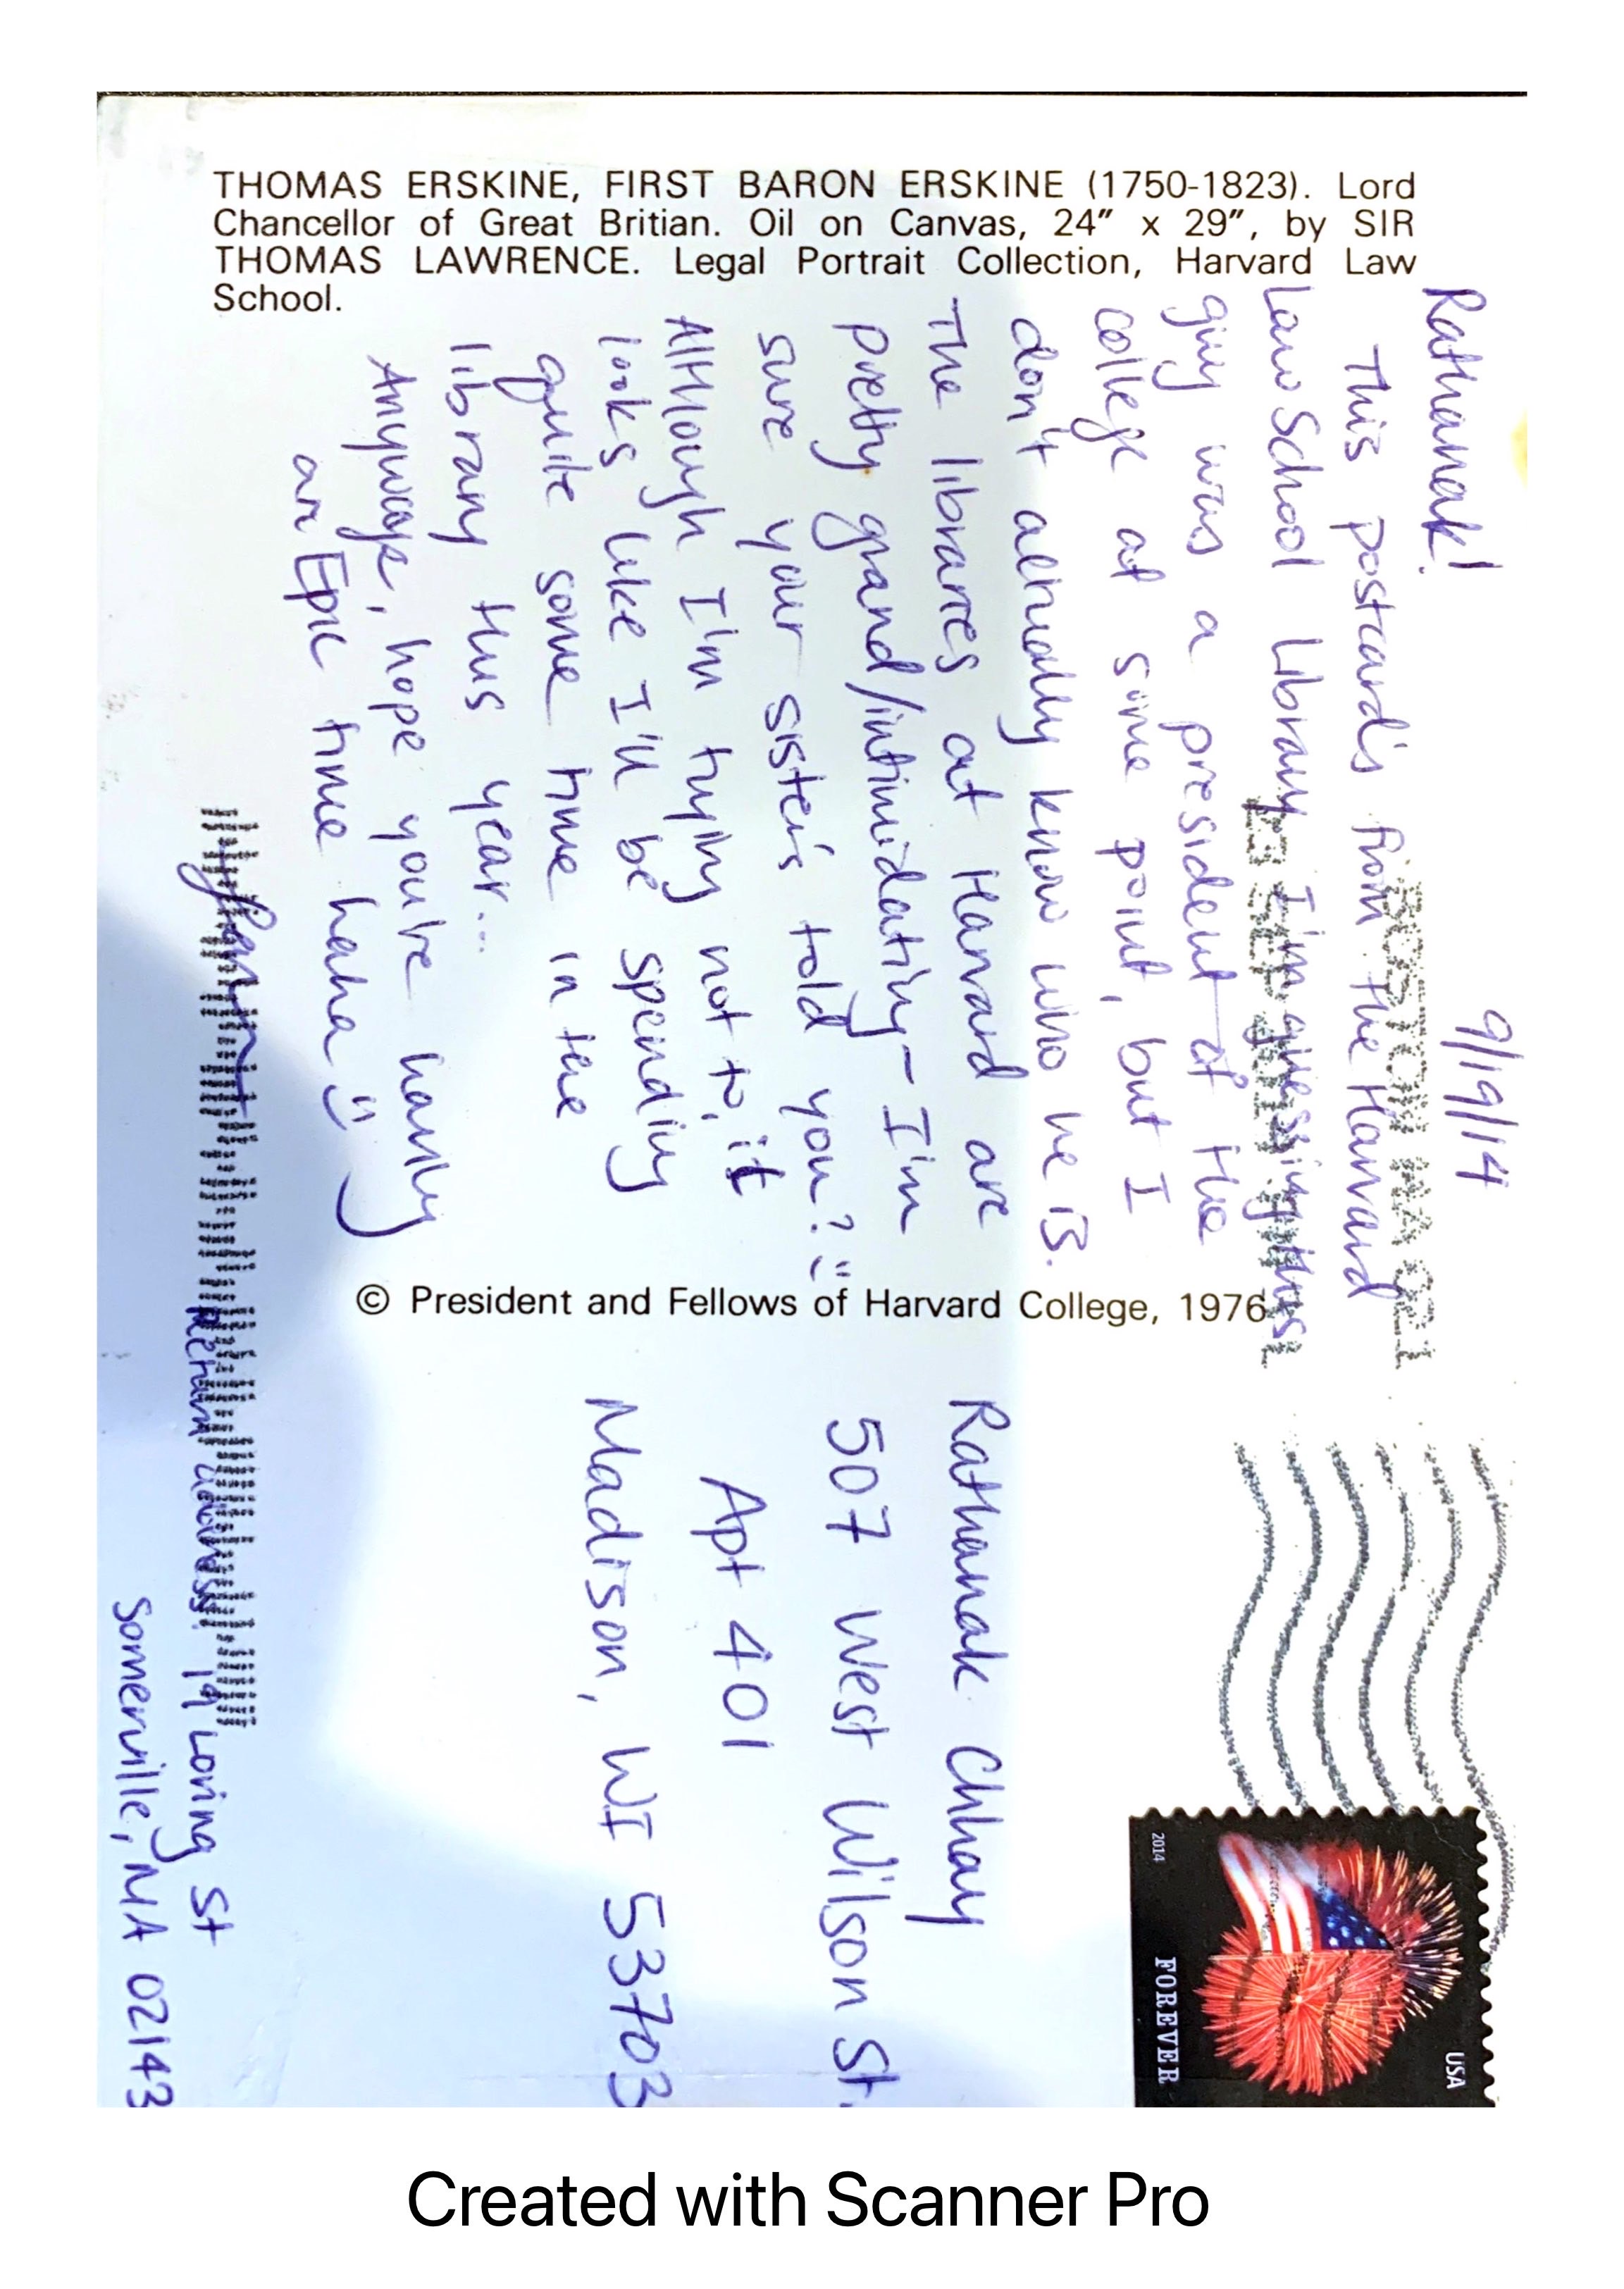 THOMAS ERSKINE, FIRST BARON ERSKINE (1750-1823). Lord
Chancellor of Great Britian. Oil on Canvas, 24″ x 29″, by SIR
THOMAS LAWRENCE. Legal Portrait Collection, Harvard Law
School.
9/19/14
Rathanak!
This postcard's from the Harvard
Law School Library. I'm guessing this
guy was a president of the
college at some point, but I
don't actually know who he is.
The libraries at Harvard are
pretty grand/intimidating - I'm
sure your sister's told you? :)
Although I'm trying not to, it
looks like I'll be spending
quite some time in the
library this year...
Anyways, hope you're having
an Epic time haha :)
© President and Fellows of Harvard College, 1976
BOSTON MA 021
Rathanak Chhay
507 West Wilson St.
Apt 401
Madison, WI 53703
Return address: 19 Loring St
Somerville, MA 02143
2014
USA
FOREVER
Created with Scanner Pro